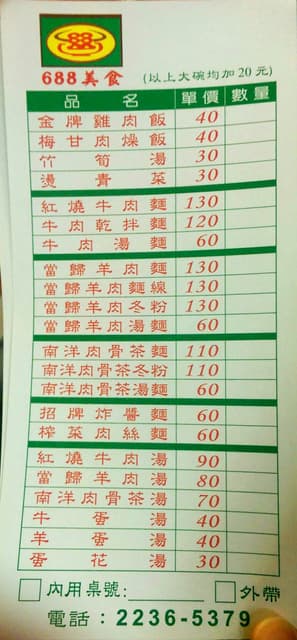 688美食 (以上大碗均加20元)
品名 單價 數量
金牌雞肉飯 40
梅甘肉燥飯 40
竹筍湯 30
燙青菜 30
紅燒牛肉麵 130
牛肉乾拌麵 120
牛肉湯麵 60
當歸羊肉麵 130
當歸羊肉麵線 130
當歸羊肉冬粉 130
當歸羊肉湯麵 60
南洋肉骨茶麵 110
南洋肉骨茶冬粉 110
南洋肉骨茶湯麵 60
招牌炸醬麵 60
榨菜肉絲麵 60
紅燒牛肉湯 90
當歸羊肉湯 80
南洋肉骨茶湯 70
牛蛋湯 40
羊蛋湯 40
蛋花湯 30
內用桌號:________ 外帶
電話:2236-5379